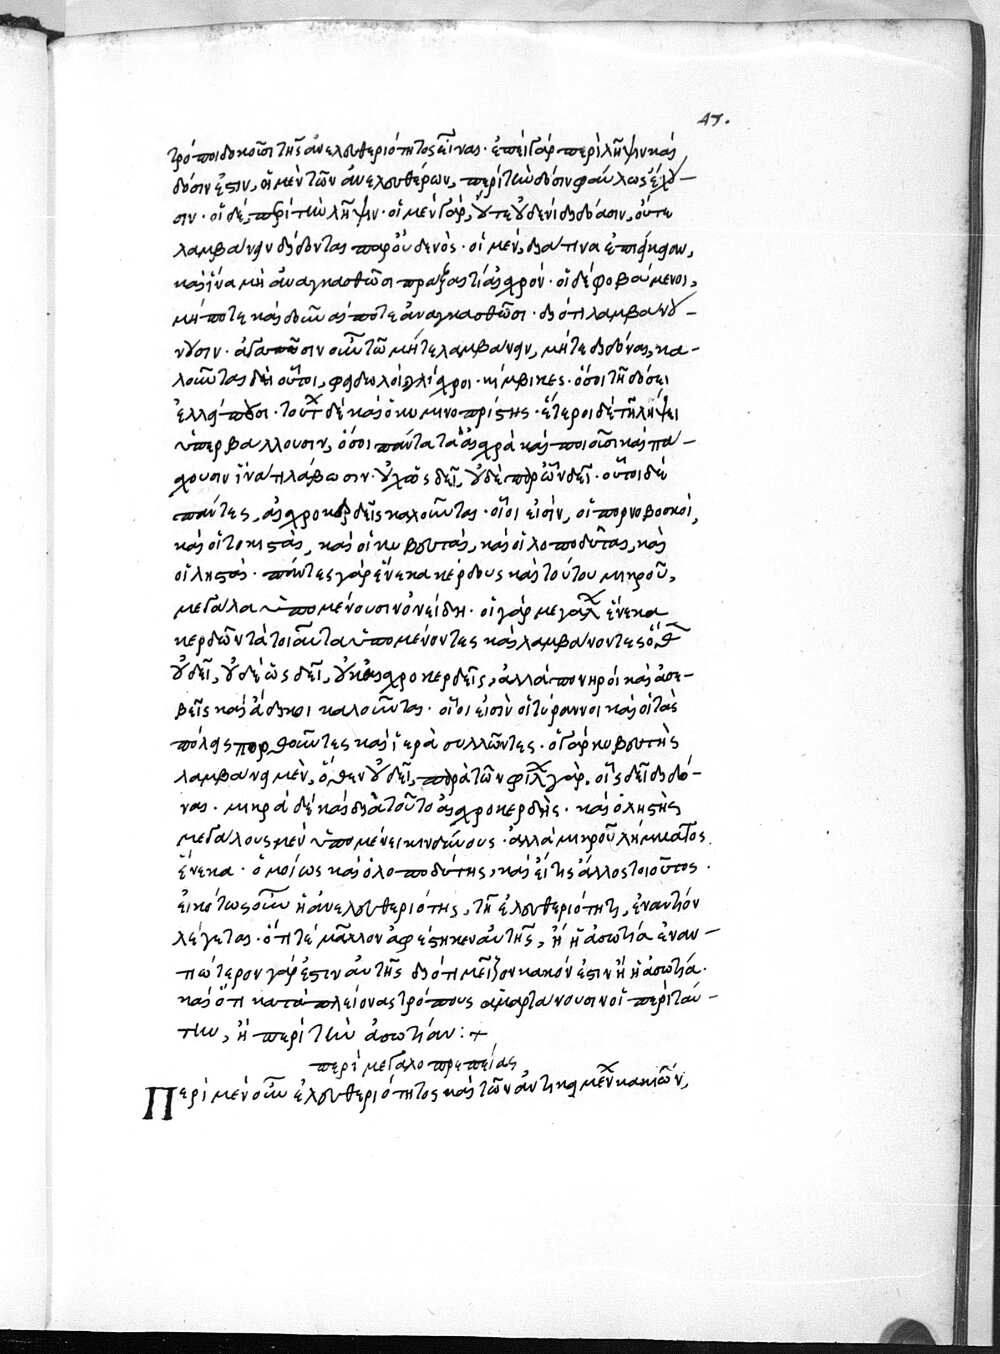 47.
τρόποι δοκοῦσι τῆς ἀνελευθεριότητος εἶναι· ἐπεὶ γὰρ περὶ λῆψιν καὶ
δόσιν ἐστιν, οἱ μὲν τῶν ἀνελευθέρων, περὶ τὴν δόσιν φαύλως ἔχου-
σιν· οἱ δὲ, περὶ τὴν λῆψιν· οἱ μὲν γὰρ, οὔτε οὐδενὶ διδόασιν, οὔτε
λαμβάνειν διδόντας παρ' οὐδενός· οἱ μὲν, διά τινα ἐπιείκειαν,
καὶ ἵνα μὴ ἀναγκασθῶσι πρᾶξαί τι αἰσχρόν· οἱ δὲ φοβούμενοι,
μή ποτε καὶ δοῦναί ποτε ἀναγκασθῶσι· διότι λαμβάνου-
νουσιν· ἀγαπῶσιν οὖν τῶ μήτε λαμβάνειν, μήτε διδόναι, κα-
λοῦνται δὲ οὗτοι, φειδωλοὶ, γλίσχροι· κίμβικες· ὅσοι τῆ δόσει
ἐλλείπουσι· τοιοῦτος δὲ καὶ ὁ κυμινοπρίστης· ἕτεροι δὲ τῆ λήψει
ὑπερβάλλουσιν, ὅσοι πάντα τὰ αἰσχρὰ καὶ ποιοῦσι καὶ πά-
σχουσιν ἵνα τι λάβωσιν· οὐχ ὡς δεῖ, οὐδὲ παρ' ὧν δεῖ· οὗτοι δὲ
πάντες, αἰσχροκερδεῖς καλοῦνται· οἷοί εἰσιν, οἱ πορνοβοσκοὶ,
καὶ οἱ τοκισταὶ, καὶ οἱ κυβευταὶ, καὶ οἱ λοποδῦται, καὶ
οἱ λησταί· πάντες γὰρ ἕνεκα κέρδους καὶ τούτου μικροῦ,
μεγάλα ὑπομένουσιν ὀνείδη· οἱ γὰρ μεγάλων ἕνεκα
κερδῶν τὰ τοιαῦτα ὑπομένοντες καὶ λαμβάνοντες ὅθεν
οὐ δεῖ, οὐδὲ ὡς δεῖ, οὐκ αἰσχροκερδεῖς, ἀλλὰ πονηροὶ καὶ ἀσε-
βεῖς καὶ ἄδικοι καλοῦνται· οἷοί εἰσὶν οἱ τύραννοι καὶ οἱ τὰς
πόλεις πορθοῦντες καὶ ἱερὰ συλῶντες· ὁ γὰρ κυβευτὴς
λαμβάνει μὲν, ὅθεν οὐ δεῖ, παρὰ τῶν φίλων γὰρ, οἷς δεῖ διδό-
ναι· μικρὰ δὲ καὶ διὰ τοῦτο αἰσχροκερδής· καὶ ὁ ληστὴς
μεγάλους μὲν ὑπομένει κινδύνους· ἀλλὰ μικροῦ λήμματος
ἕνεκα· ὁμοίως καὶ ὁ λοποδύτης, καὶ εἴ τις ἄλλος τοιοῦτος·
εἰκότως οὖν ἡ ἀνελευθεριότης, τῆ ἐλευθεριότητι, ἐναντίον
λέγεται· ὅτι τὲ μᾶλλον ἀφέστηκεν αὐτῆς, ἢ ἡ ἀσωτία ἐναν-
τιώτερον γάρ ἐστιν αὐτῆς διότι μεῖζον κακόν ἐστιν ἢ ἡ ἀσωτία·
καὶ ὅτι κατὰ πλείονας τρόπους ἁμαρτάνουσιν οἱ περὶ ταύ-
την, ἢ περὶ τὴν ἀσωτίαν:+
περὶ μεγαλοπρεπείας
Περὶ μὲν οὖν ἐλευθεριότητος καὶ τῶν ἀντικειμένων κακιῶν,